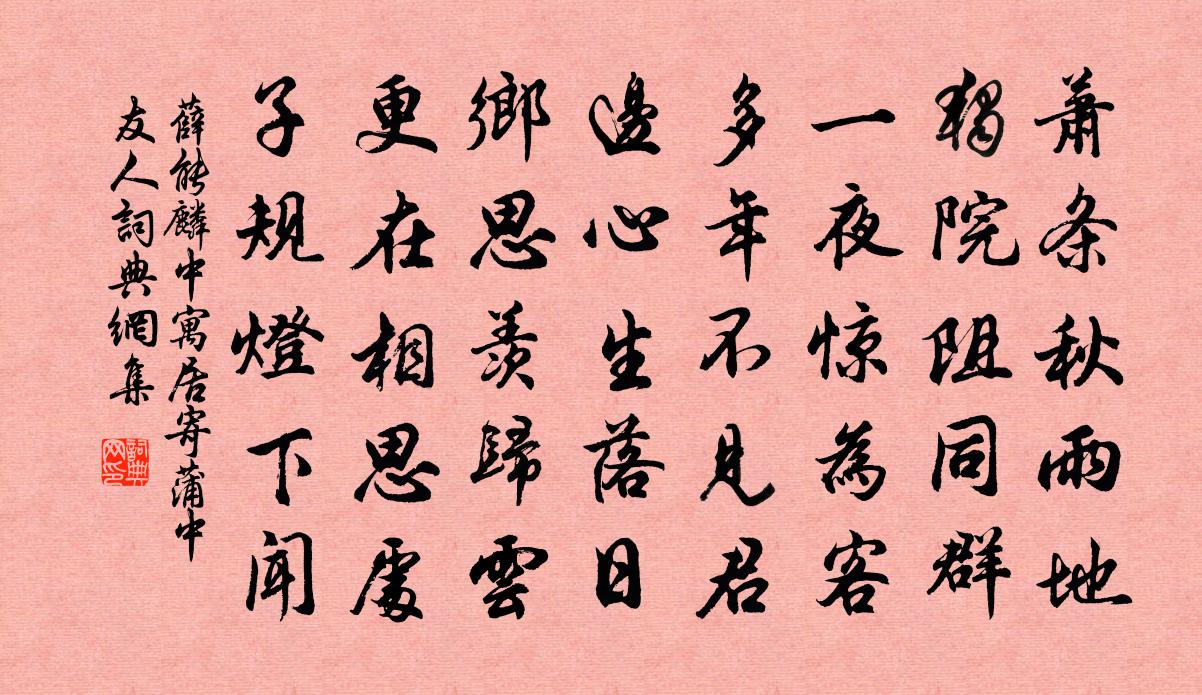 萧条秋雨地
独院阻同群
一夜惊為客
多年不見君
邊心生落日
鄉思羡歸雲
更在相思處
子規燈下聞
薛能麟中寓居寄蒲中
友人詞典網集
詞典网印